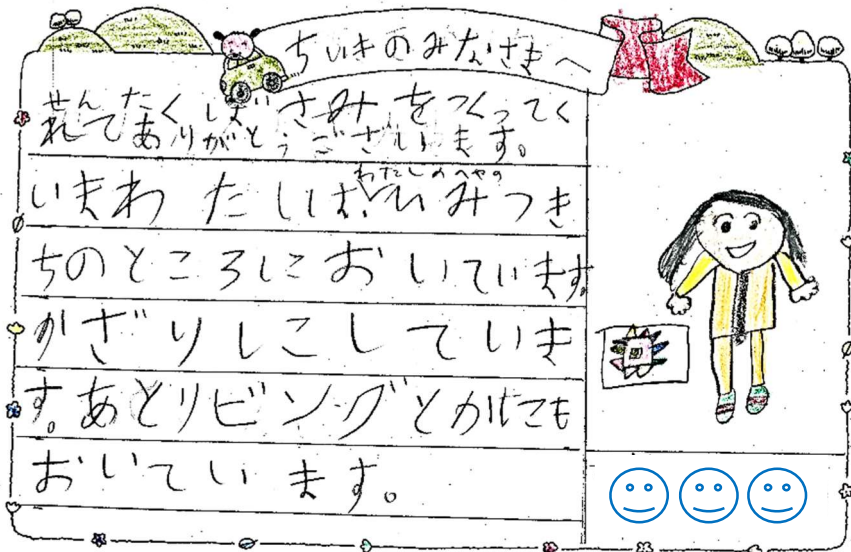 ちいきのみなさまへ
せんたくばさみをつくってく
れてありがとうございます。
いまわたしは、わたしのへやのひみつき
ちのところにおいています。
かざりにしていま
す。あとリビングとかにも
おいています。